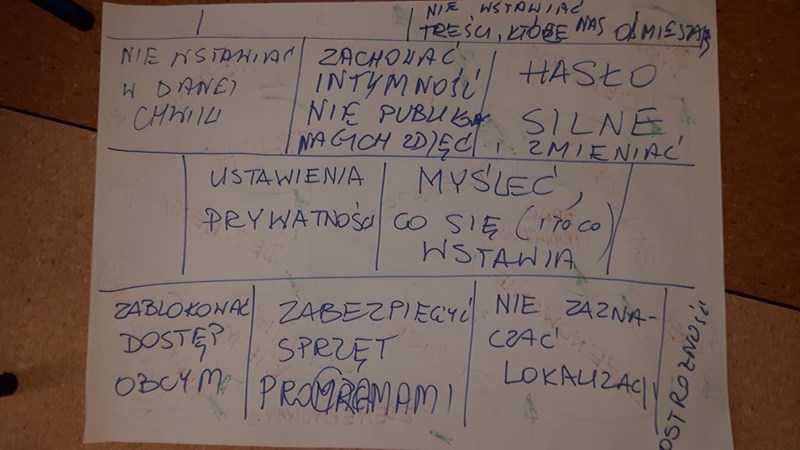 NIE WSTAWIAĆ
TREŚCI, KTÓRE NAS OŚMIESZAJĄ
NIE WSTAWIAĆ
W DANEJ
CHWILI
ZACHOWAĆ
INTYMNOŚĆ
NIE PUBLIK.
NAGICH ZDJĘĆ
HASŁO
SILNE
I ZMIENIAĆ
USTAWIENIA
PRYWATNOŚCI
MYŚLEĆ,
CO SIĘ (I PO CO)
WSTAWIA
ZABLOKOWAĆ
DOSTĘP
OBCYM
ZABEZPIECZYĆ
SPRZĘT
PROGRAMAMI
NIE ZAZNA-
CZAĆ
LOKALIZACJI
OSTROŻNOŚĆ